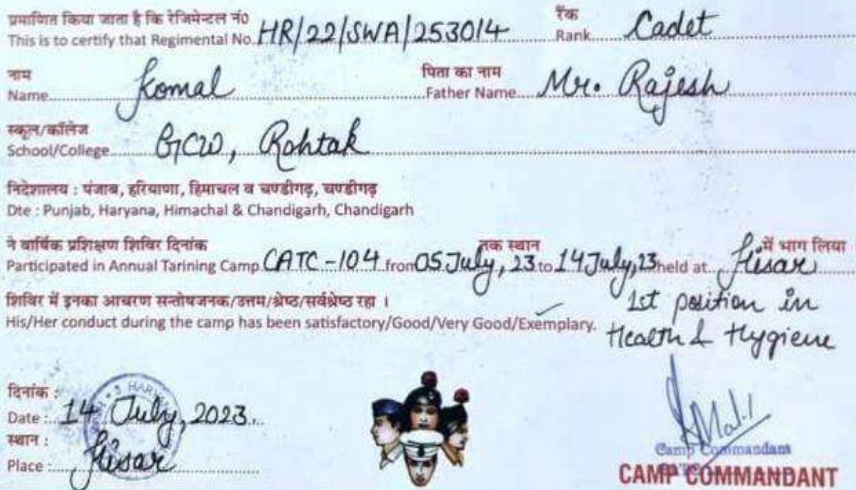 प्रमाणित किया जाता है कि रेजिमेन्टल नं० रैंक
This is to certify that Regimental No. HR/22/SWA/253014 Rank Cadet
नाम पिता का नाम
Name Komal Father Name Mr. Rajesh
स्कूल/कॉलेज
School/College GCW, Rohtak
निदेशालय : पंजाब, हरियाणा, हिमाचल व चण्डीगढ़, चण्डीगढ़
Dte : Punjab, Haryana, Himachal & Chandigarh, Chandigarh
ने वार्षिक प्रशिक्षण शिविर दिनांक तक स्थान में भाग लिया
Participated in Annual Tarining Camp CATC-104 from 05 July, 23 to 14 July, 23 held at Hisar
शिविर में इनका आचरण सन्तोषजनक/उत्तम/श्रेष्ठ/सर्वश्रेष्ठ रहा ।
His/Her conduct during the camp has been satisfactory/Good/Very Good/Exemplary.
1st position in
Health & Hygiene
दिनांक :
Date : 14 July, 2023.
स्थान :
Place : Hisar
Camp Commandant
CAMP COMMANDANT